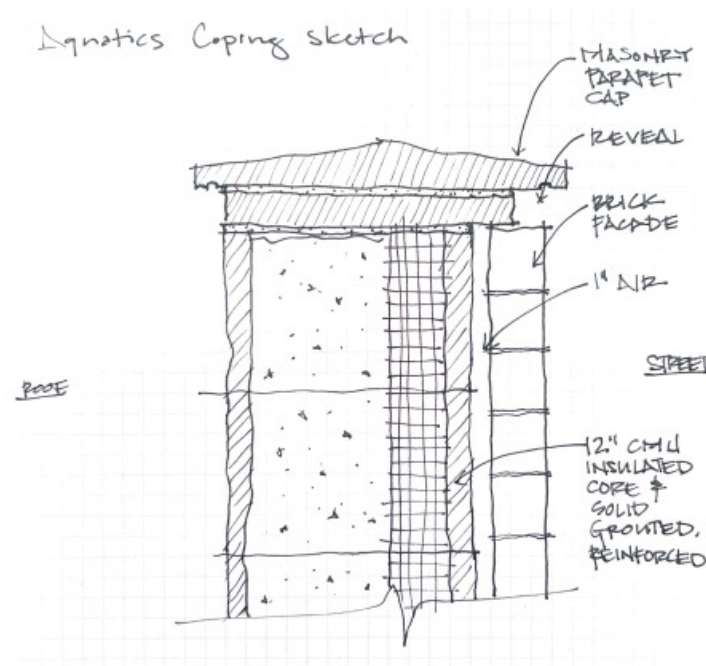 Aquatics Coping sketch
MASONRY
PARAPET
CAP
REVEAL
BRICK
FACADE
1" AIR
STREET
ROOF
12" CMU
INSULATED
CORE &
SOLID
GROUTED,
REINFORCED